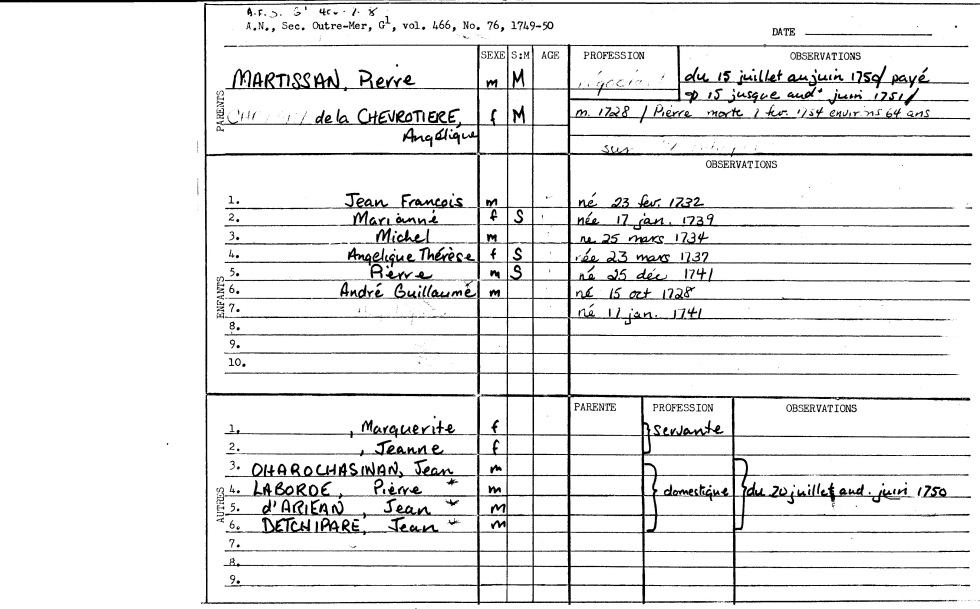 A.N., Sec. Outre-Mer, G1, vol. 466, No. 76, 1749-50
DATE
SEXE S:M AGE PROFESSION OBSERVATIONS
PARENTS
MARTISSAN, Pierre m M négociant du 15 juillet au juin 1750/ payé
15 jusque aud. juin 1751/
de la CHEVROTIERE, f M m. 1728 / Pierre morte 7 fev. 1754 environs 64 ans
Angélique
sur
OBSERVATIONS
ENFANTS
1. Jean François m né 23 fev. 1732
2. Marianné f S née 17 jan. 1739
3. Michel m ne 25 mars 1734
4. Angelique Thérèse f S née 23 mars 1737
5. Pierre m S né 25 déc 1741
6. André Guillaumé m né 15 oct 1728
7. né 11 jan. 1741
8.
9.
10.
PARENTE PROFESSION OBSERVATIONS
AUTRES
1. , Marguerite f } servante
2. , Jeanne f
3. OHAROCHASINAN, Jean m
4. LABORDE, Pierre * m } domestique } du 20 juillet aud. juin 1750
5. d'ARIEAN, Jean * m
6. DETCHIPARE, Jean * m
7.
8.
9.